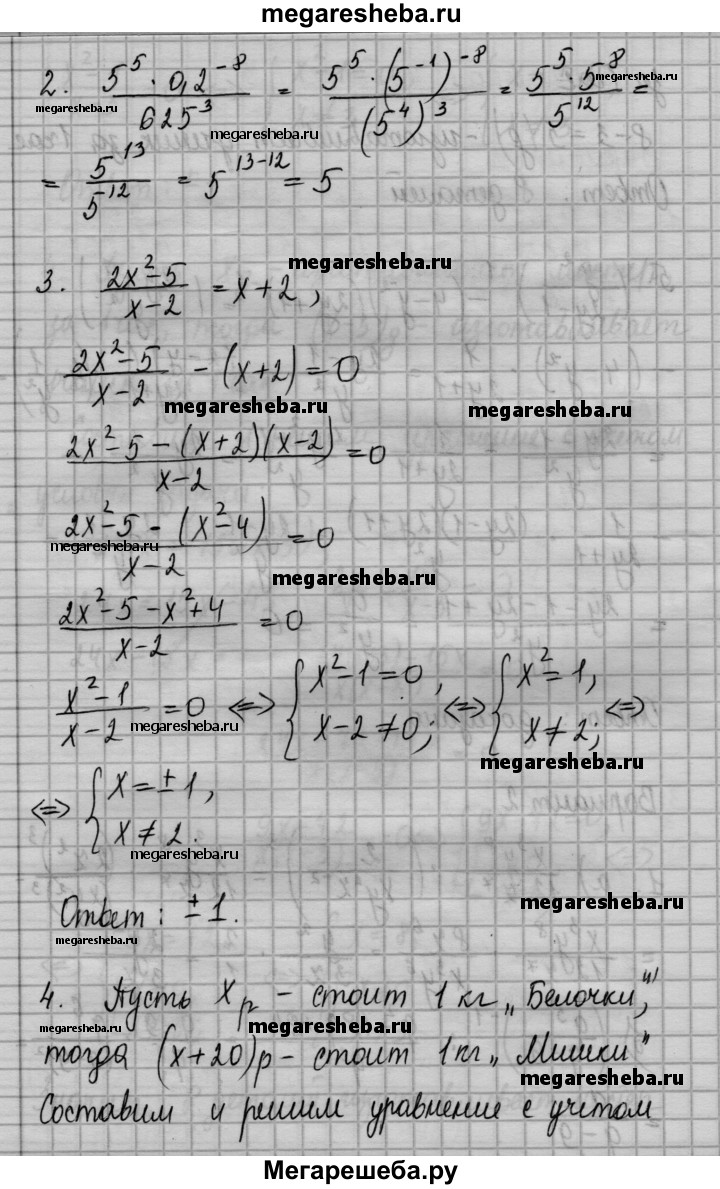 megaresheba.ru
2. (5^5 · 0,2^-8)/(625^3) = (5^5 · (5^-1)^-8)/((5^4)^3) = (5^5 · 5^8)/(5^12) =
megaresheba.ru
megaresheba.ru
megaresheba.ru
= 5^13/5^12 = 5^(13-12) = 5
megaresheba.ru
3. (2x^2-5)/(x-2) = x+2,
(2x^2-5)/(x-2) - (x+2) = 0
megaresheba.ru
megaresheba.ru
(2x^2-5-(x+2)(x-2))/(x-2) = 0
(2x^2-5-(x^2-4))/(x-2) = 0
megaresheba.ru
megaresheba.ru
(2x^2-5-x^2+4)/(x-2) = 0
(x^2-1)/(x-2) = 0 ⇔ { x^2-1=0, x-2≠0; ⇔ { x^2=1, x≠2; ⇔
megaresheba.ru
megaresheba.ru
⇔ { x=±1, x≠2.
megaresheba.ru
Ответ: ±1.
megaresheba.ru
megaresheba.ru
4. Пусть x р - стоит 1 кг „Белочки",
megaresheba.ru
megaresheba.ru
тогда (x+20)р - стоит 1кг „Мишки"
megaresheba.ru
Составим и решим уравнение с учетом
Мегарешеба.ру